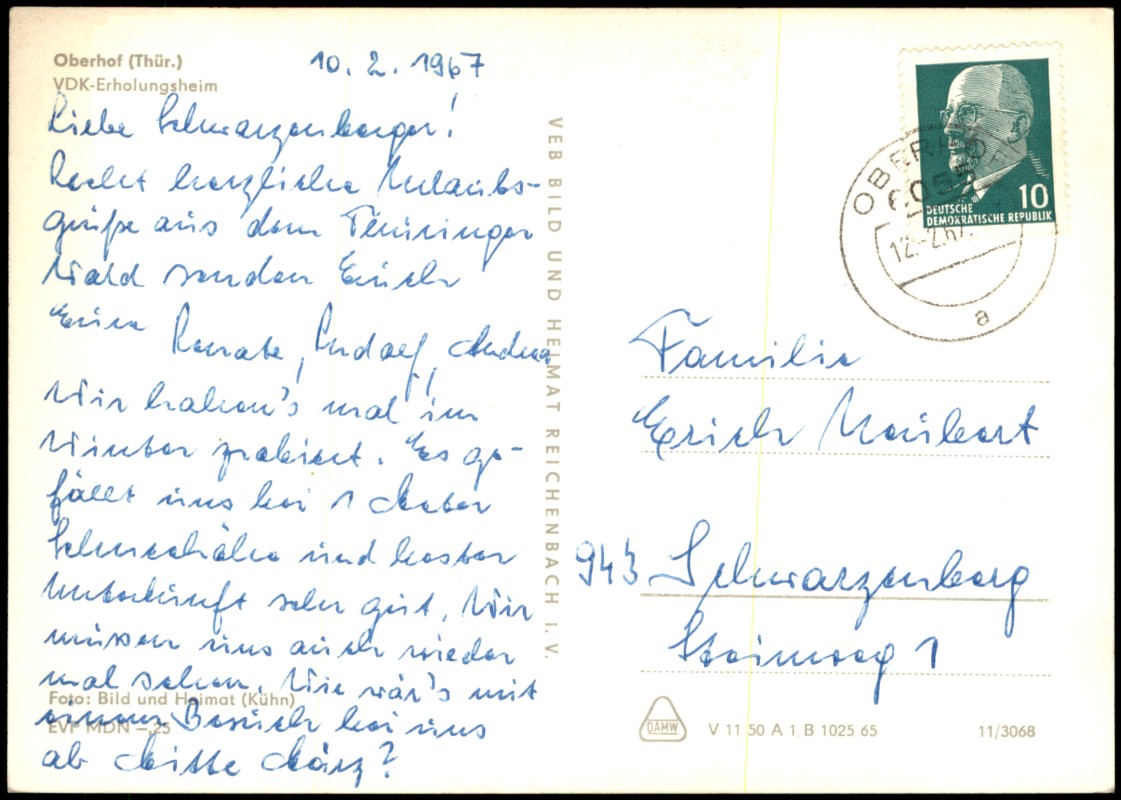 Oberhof (Thür.)
VDK-Erholungsheim
10. 2. 1967
Liebe Schwarzenberger!
Recht herzliche Urlaubs-
grüße aus dem Thüringer
Wald senden Euch
Eure Renate, Rudolf, Andrea
Wir haben's mal im
Winter probiert. Es ge-
fällt uns bei 1 Meter
Schneehöhe und bester
Unterkunft sehr gut. Wir
müssen uns auch wieder
mal sehen. Wie wär's mit
einem Besuch bei uns
ab Mitte März?
Foto: Bild und Heimat (Kühn)
EVP MDN –,25
VEB BILD UND HEIMAT REICHENBACH I. V.
DEUTSCHE
DEMOKRATISCHE REPUBLIK
10
OBERHOF
6055
12.-2.67
a
Familie
Erich Neubert
943 Schwarzenberg
Steinweg 1
DAMW
V 11 50 A 1 B 1025 65
11/3068